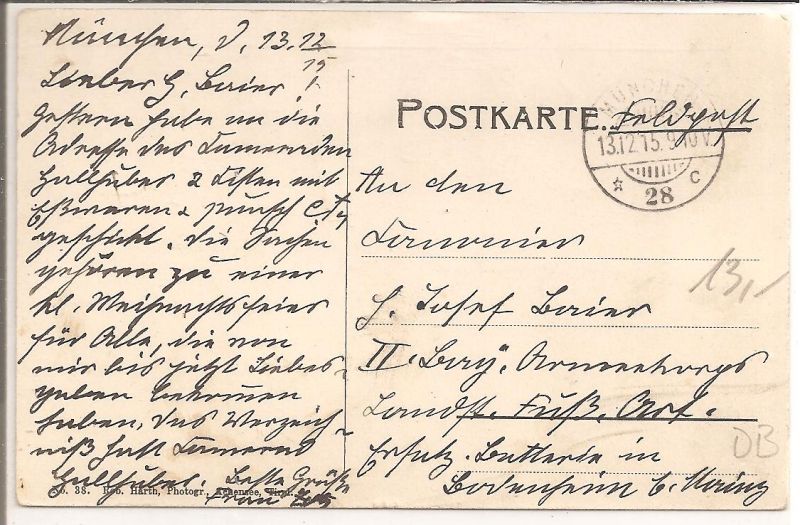 München, d. 13.12
15
Lieber H. Baier!
Gestern habe an die
Adresse des Kameraden
Hallhuber 2 Kisten mit
Eßwaren & Punsch etz
geschickt. Die Sachen
gehören zu einer
kl. Weihnachtsfeier
für Alle, die von
mir bis jetzt Liebes-
gaben bekommen
haben, das Verzeich-
niß hat Kamerad
Hallhuber. Beste Grüße
Frau
No. 38. Rob. Härth, Photogr., Achensee, Tirol.
POSTKARTE. Feldpost
MÜNCHEN
13.12.15. 9-10 V.
28 C
An den
Kanonier
H. Josef Baier
II. Bay. Armeekorps
Landst. Fuß. Art.
Ersatz. Batterie in
Bodenheim b. Mainz
13,-
DB